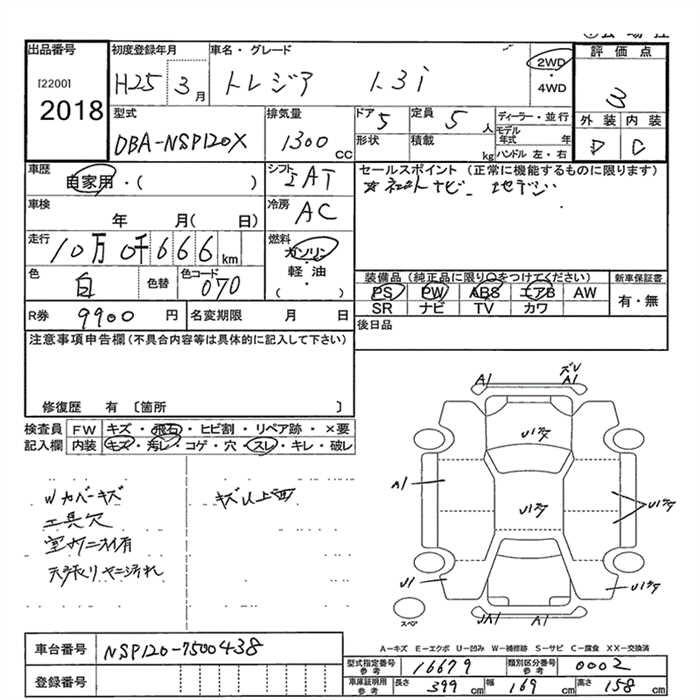 出品番号 初度登録年月 車名・グレード 評価点
[2200] H25 3月 トレジア 1.3i 2WD・4WD 3
2018
型式 排気量 ドア 定員 ディーラー・並行 外装 内装
DBA-NSP120X 1300cc 5 5人 モデル年式 年 D C
形状 積載 kg ハンドル 左・右
車歴 シフト セールスポイント（正常に機能するものに限ります）
自家用・（ ） IAT ☆社外ナビ 地デジ
車検 冷房
年 月（ 日） AC
走行 燃料
10万0千666km ガソリン・軽油・（ ）
色 色替 色コード 装備品（純正品に限り○をつけてください） 新車保証書
白 070 PS PW ABS エアB AW 有・無
SR ナビ TV カワ
R券 9900円 名変期限 月 日 後日品
注意事項申告欄（不具合内容等は具体的に記入して下さい）
修復歴 有 〔箇所 〕
検査員 FW キズ・飛石・ヒビ割・リペア跡・×要
記入欄 内装 キズ・汚レ・コゲ・穴・スレ・キレ・破レ
Wカバーキズ キズ以上面
工具欠
室内ニオイ有
天張りヤニ汚れ
A1 ズレ A1
U1ｽｸ
A1 U1ｽｸ U1ｽｸ
U1 U1ｽｸ
スペア JA1 A1
A－キズ E－エクボ U－凹み W－補修跡 S－サビ C－腐食 XX－交換済
車台番号 NSP120-7500438
登録番号
型式指定番号 参考 16679 類別区分番号 参考 0002
車庫証明用 参考 長さ 399cm 幅 169cm 高さ 158cm